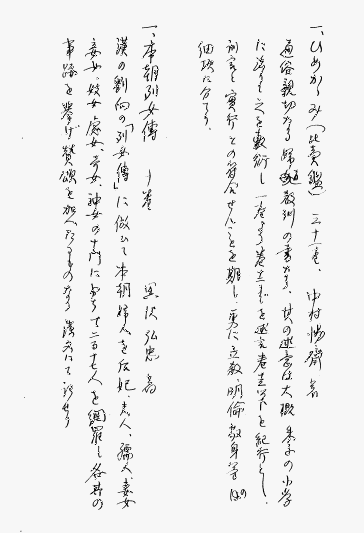 一、ひめかゞみ(比賣鑑) 三十一巻、 中村惕齋 著
通俗親切なる婦女教訓の書なり、其の述意は大概朱子の小学
に従ひて之を敷衍し 一巻より巻までを述言巻を紀行とし、
訓言と実行との符合せんことを期し、更に立教、明倫、敬身等の
細項に分てり、
一、本朝列女傳 十巻 黒沢弘忠 著
漢の劉向の「列女傳」に倣ひて本朝婦人を后妃、夫人、孺人、妻女
妾女、妓女、処女、奇女、神女の十門に分ちて二百十七人を網羅し各其の
事蹟を挙げ賛頌を加へたるものなり漢文にて記せり